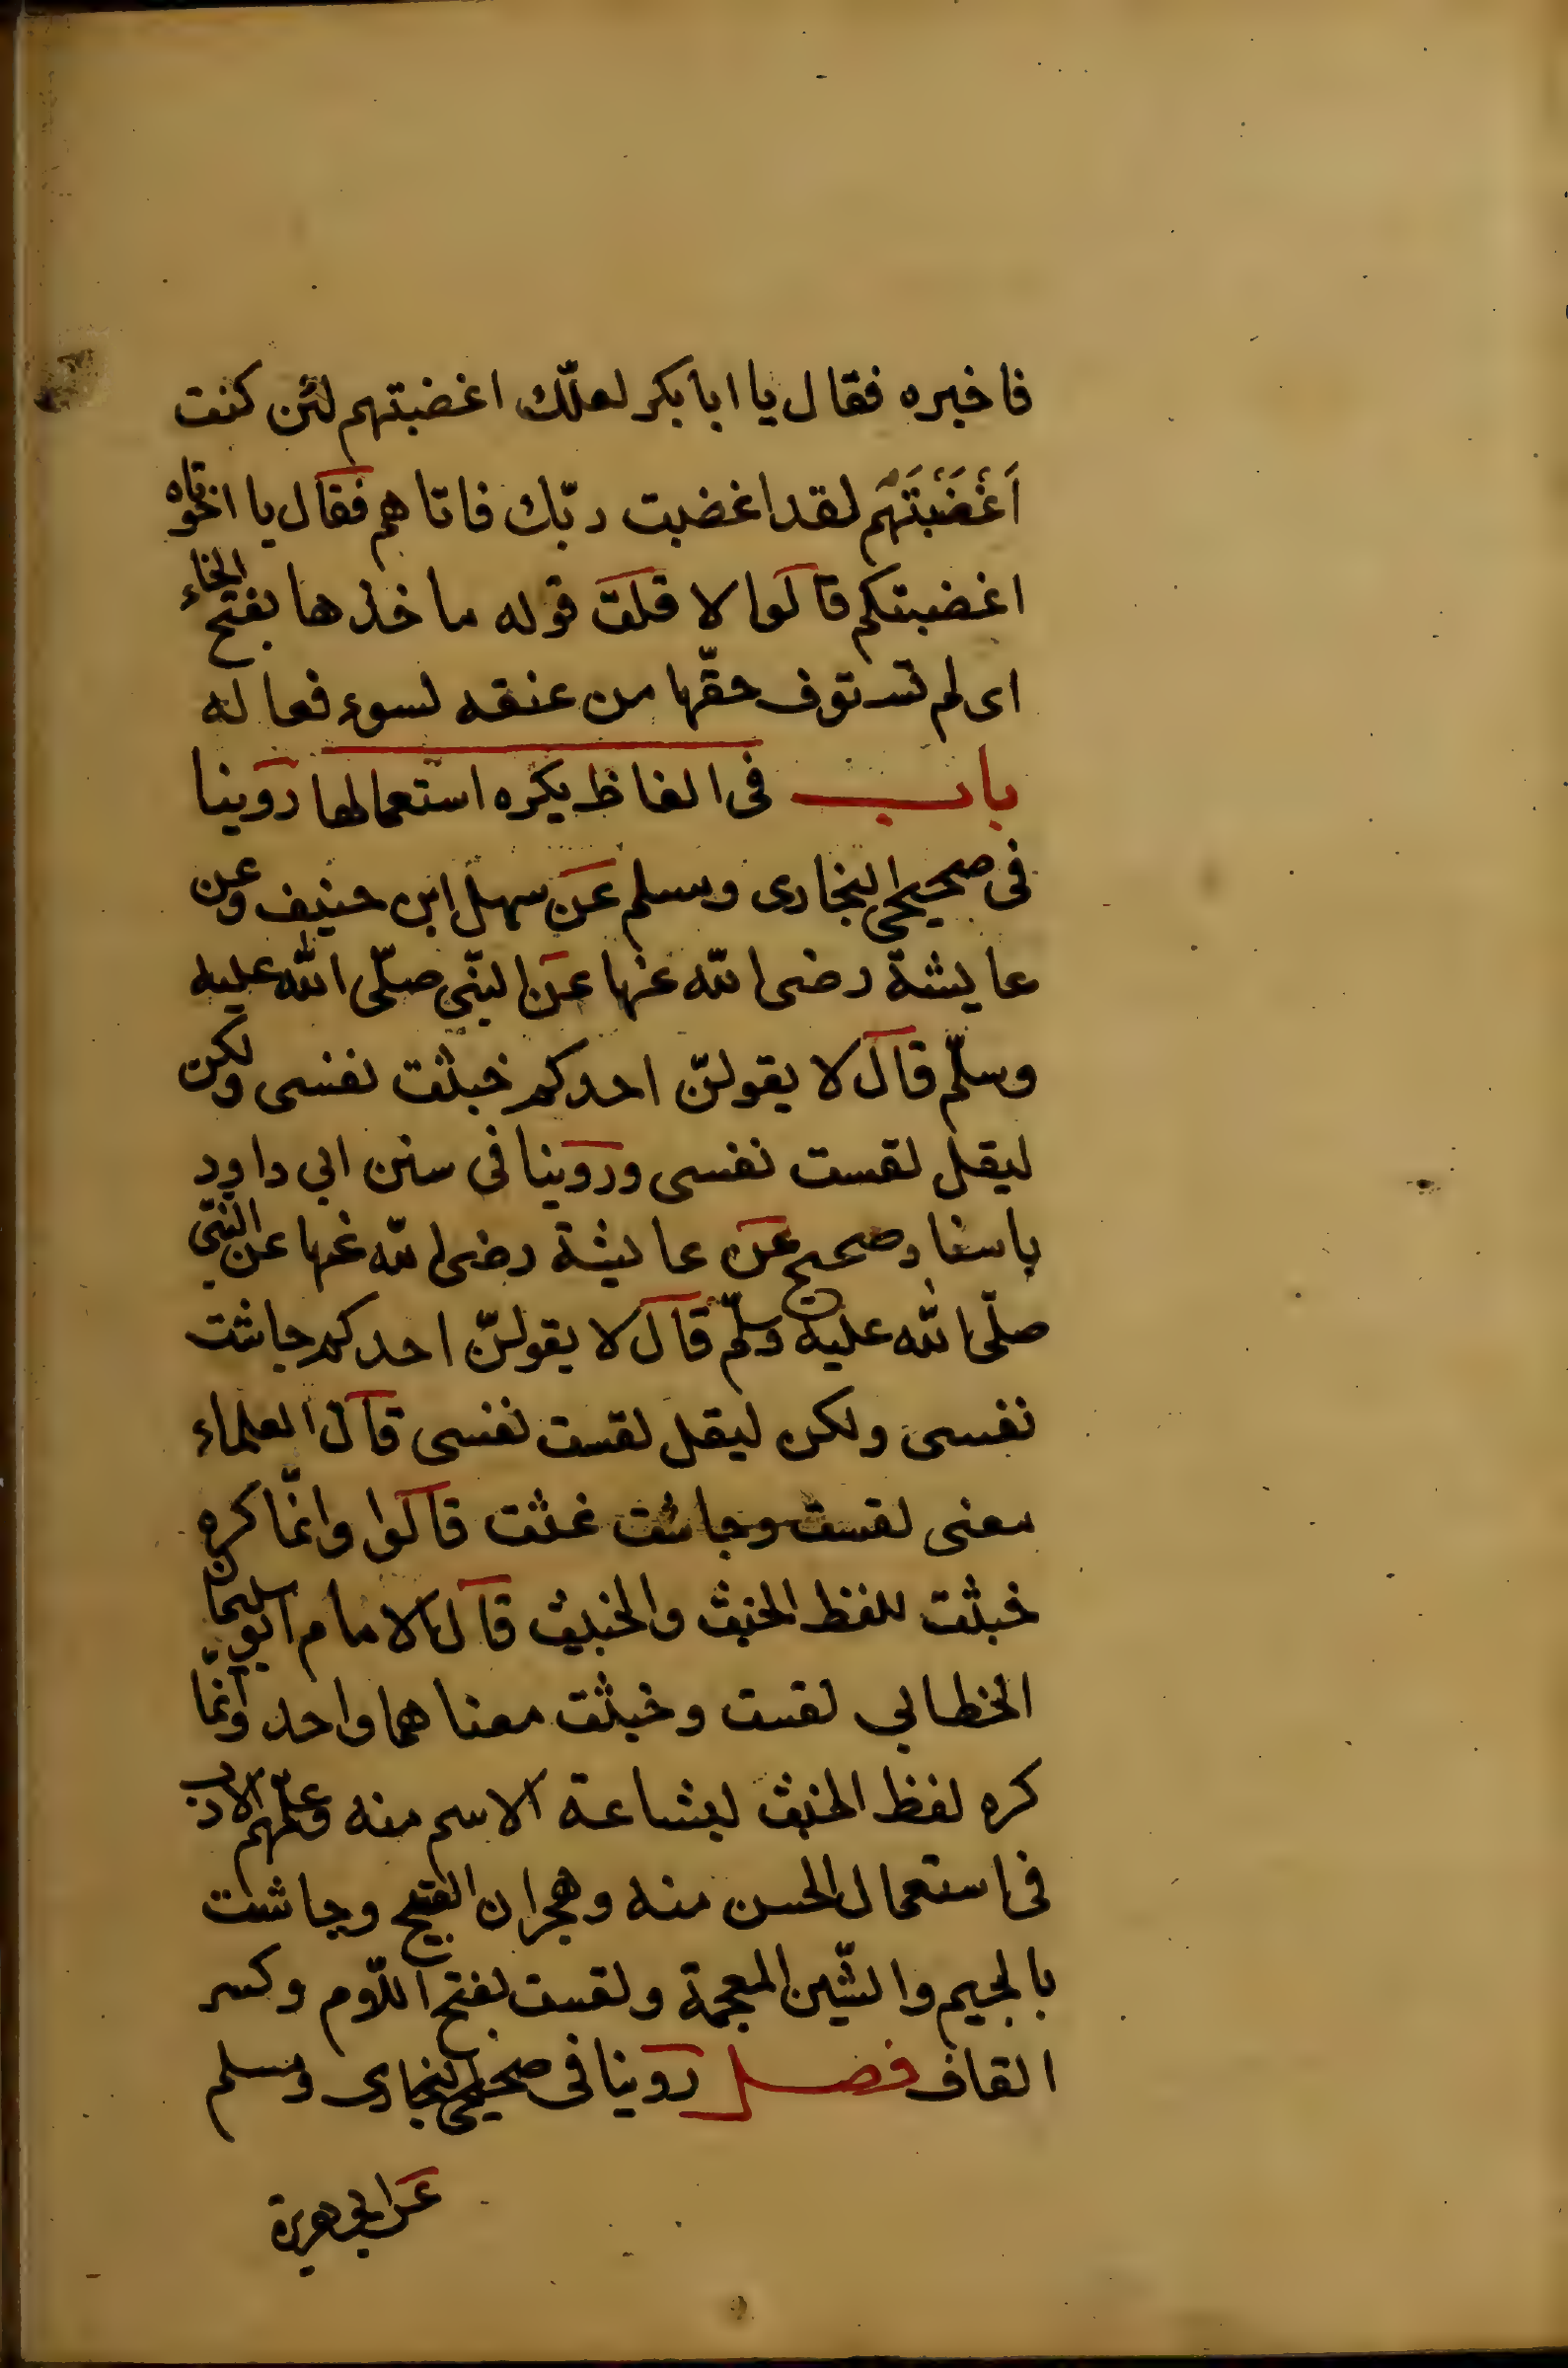 فاخبره فقال يا ابا بكر لعلّك اغضبتهم لئن كنت
اَغْضَبْتَهُم لقد اغضبت ربّك فاتاهم فقال يا اخوتاه
اغضبتكم قالوا لا قلت قوله ماخذها بفتح الخاء
اى لم تستوف حقّها من عنقه لسوء فعاله
باب فى الفاظ يكره استعمالها روينا
فى صحيحى البخارى ومسلم عن سهل ابن حنيف وعن
عايشة رضى الله عنها عن النبّى صلّى الله عليه
وسلّم قال لا يقولنّ احدكم خبثت نفسى ولكن
ليقل لقست نفسى وروينا فى سنن ابى داود
باسناد صحيح عن عايشة رضى الله عنها عن النبّى
صلّى الله عليه وسلّم قال لا يقولنّ احدكم جاشت
نفسى ولكن ليقل لقست نفسى قال العلماء
معنى لقست وجاشت غثت قالوا وانمّا كره
خبثت للفظ الخبث والخبيث قال الامام ابو سليمان
الخطابى لقست وخبثت معناهما واحد وانمّا
كره لفظ الخبث لبشاعة الاسم منه وعلّمهم الادب
فى استعمال الحسن منه وهجران القبيح وجاشت
بالجيم والشّين المعجمة ولقست بفتح اللّام وكسر
القاف فصل روينا فى صحيحى البخارى ومسلم
عن ابى هريرة